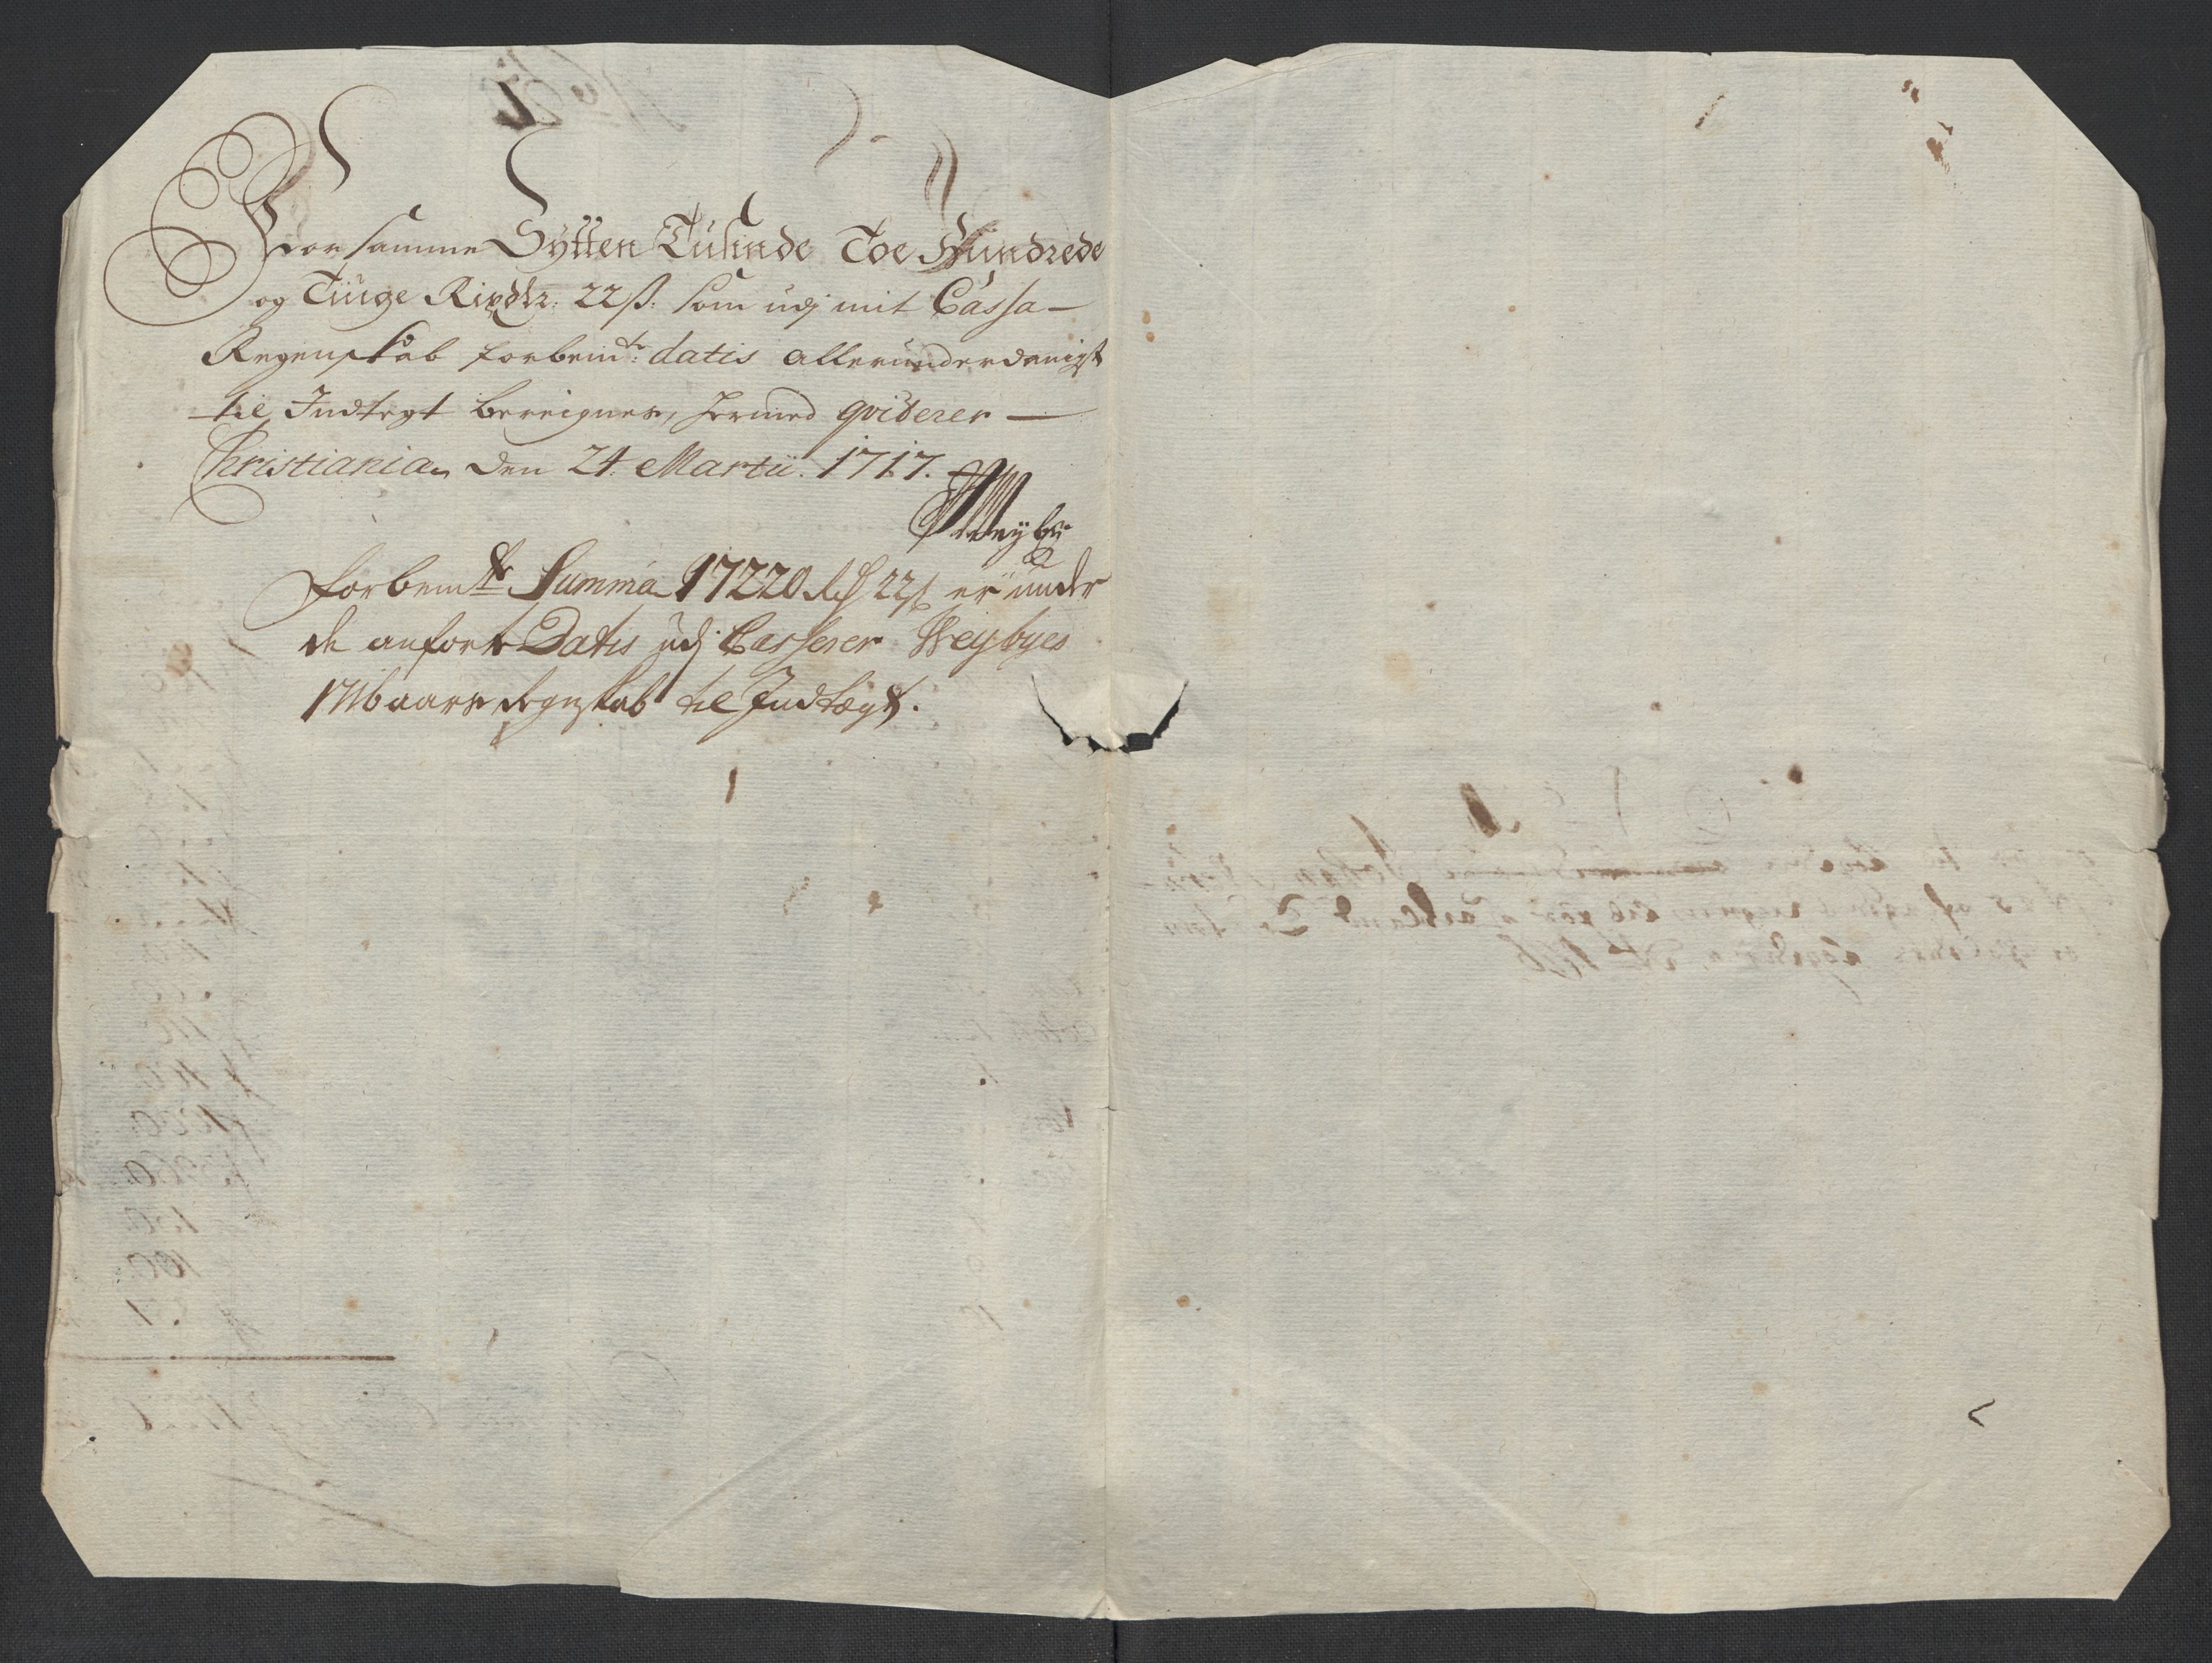 For samme Sÿtten Tusinde Toe Hundrede
og Tiuge Rixdlr: 22 ß: som udj mit Cassa-
Regenskab forbemte: datis allerunderdanigst
til Indtegt bereignes, hermed qviterer —
Christiania den 24: Martii. 1717.
Weybÿe
forbemte Summa 17220 rd 22 ß er under
de anførte Datis udj Casserer Weybyes
1716 aars Regnskab til Indtægt.